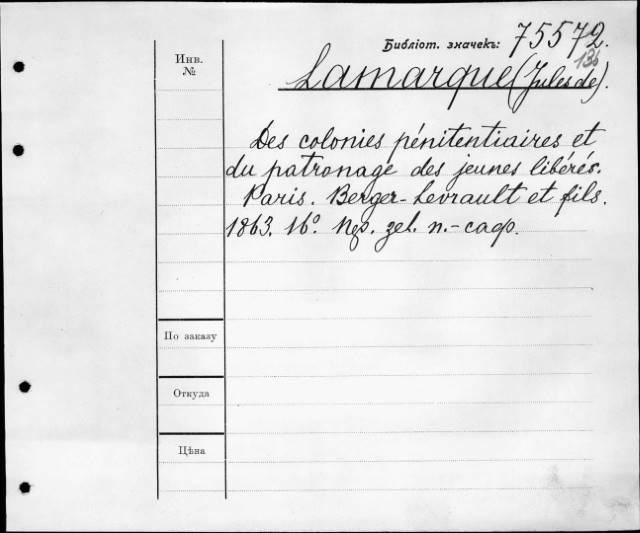 Библіот. значекъ: 75572.
136
Инв.
№
Lamarque (Jules de).
Des colonies pénitentiaires et
du patronage des jeunes libérés.
Paris. Berger-Levrault et fils.
1863. 16º. Пер. zel. п.-сафр.
По заказу
Откуда
Цѣна